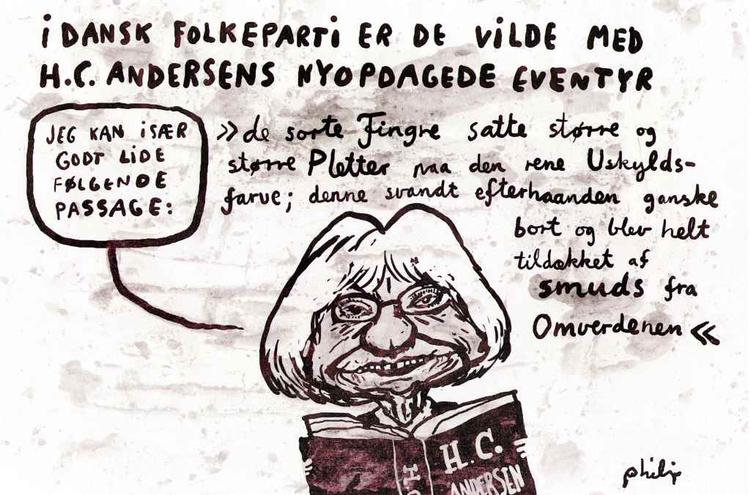 i DANSK FOLKEPARTi ER DE ViLDE MED
H.C. ANDERSENS NYOPDAGEDE EVENTYR
JEG KAN iSÆR
GODT LiDE
FØLGENDE
PASSAGE:
»de sorte Fingre satte større og
større Pletter paa den rene Uskylds-
farve; denne svandt efterhaanden ganske
bort og blev helt
tildækket af
smuds fra
Omverdenen«
H.C.
ANDERSEN
philip